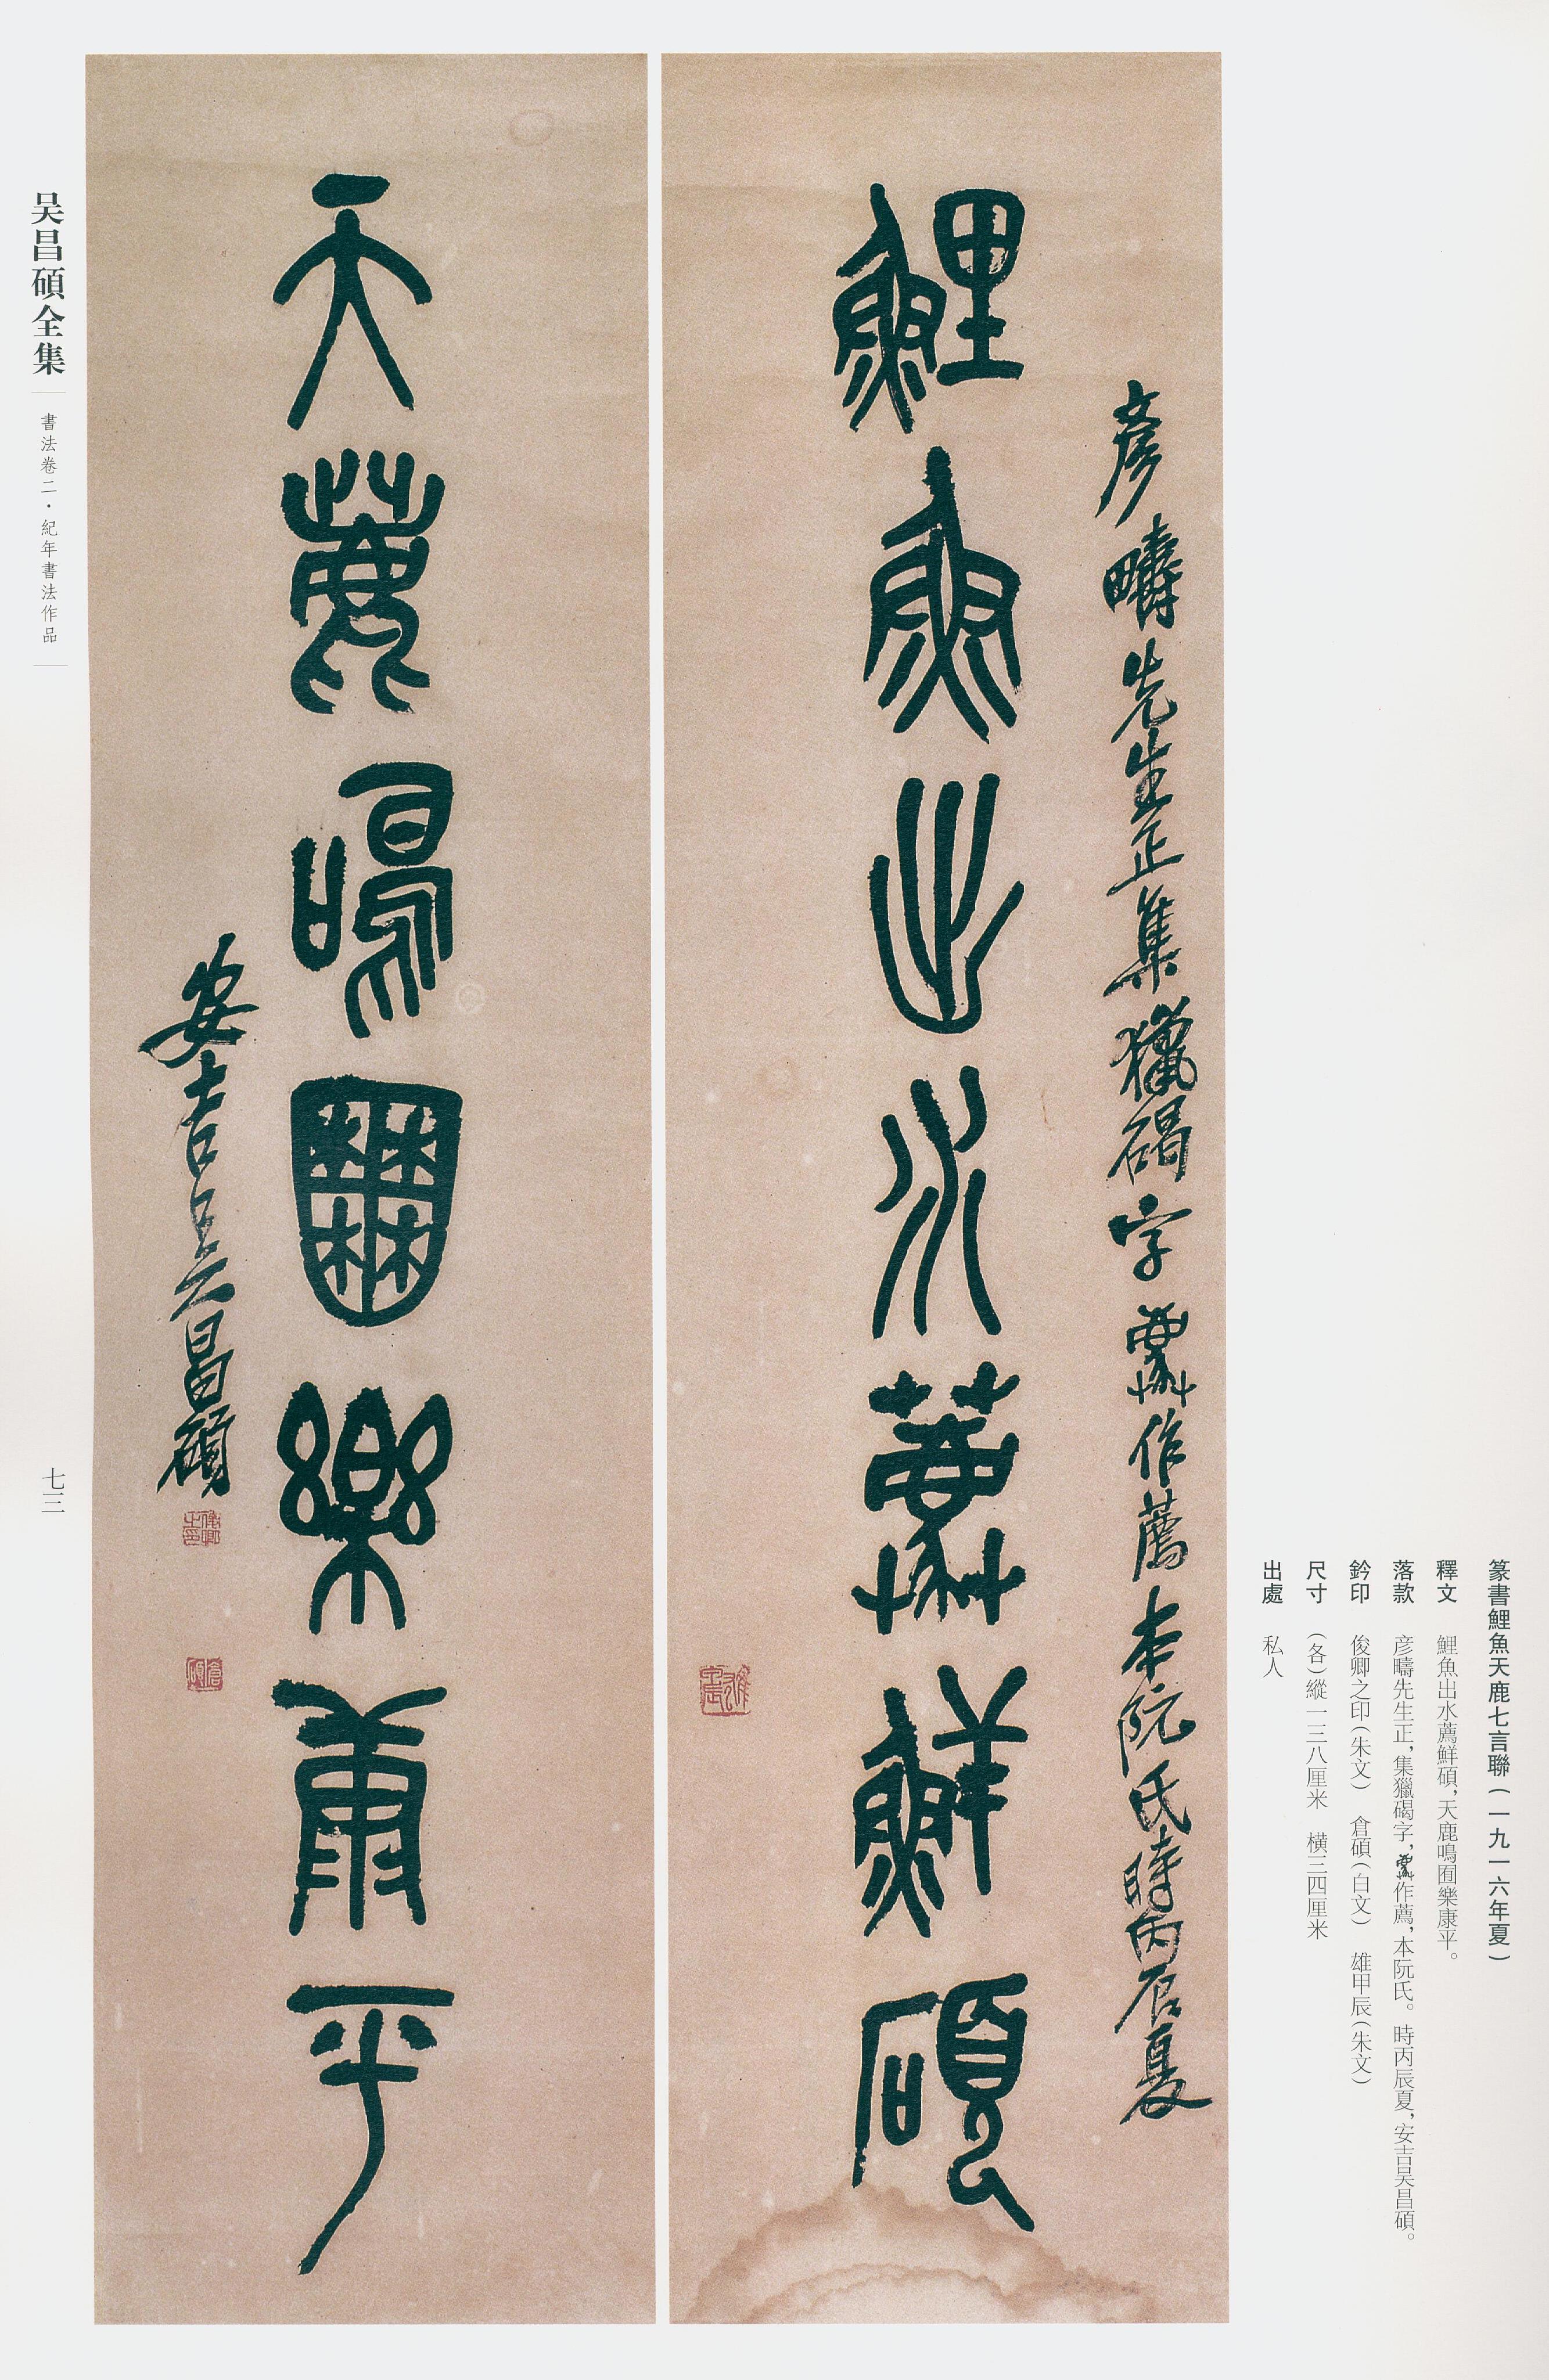 彦疇先生正集獵碣字
作薦本阮氏時丙辰夏
鯉魚出水薦鮮碩
天鹿鳴囿樂康平
安吉吳昌碩
俊卿之印
倉碩
雄甲辰
篆書鯉魚天鹿七言聯(一九一六年夏)
釋文 鯉魚出水薦鮮碩,天鹿鳴囿樂康平。
落款 彦疇先生正,集獵碣字,作薦,本阮氏。時丙辰夏,安吉吴昌碩。
鈐印 俊卿之印(朱文) 倉碩(白文) 雄甲辰(朱文)
尺寸 (各)縱一三八厘米 橫三四厘米
出處 私人
吴昌碩全集
書法卷二·紀年書法作品
七三